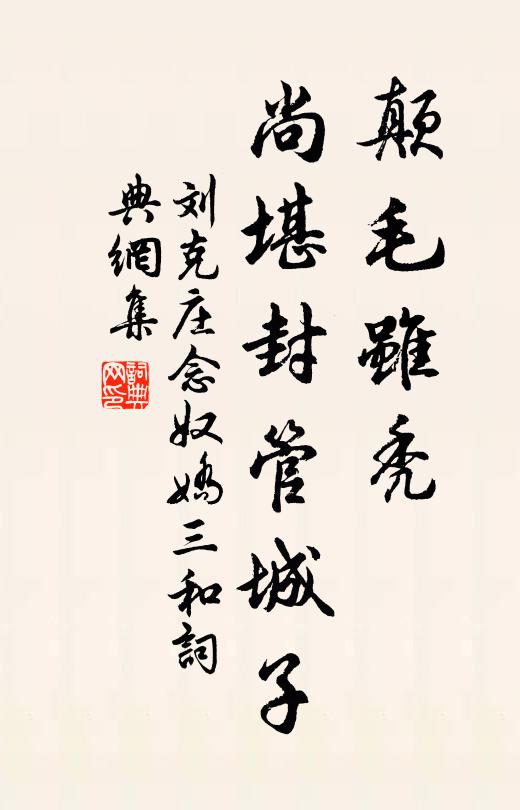 颠毛雖秃
尚堪封管城子
刘克庄念奴嬌三和詞
典網集
詞典
网印